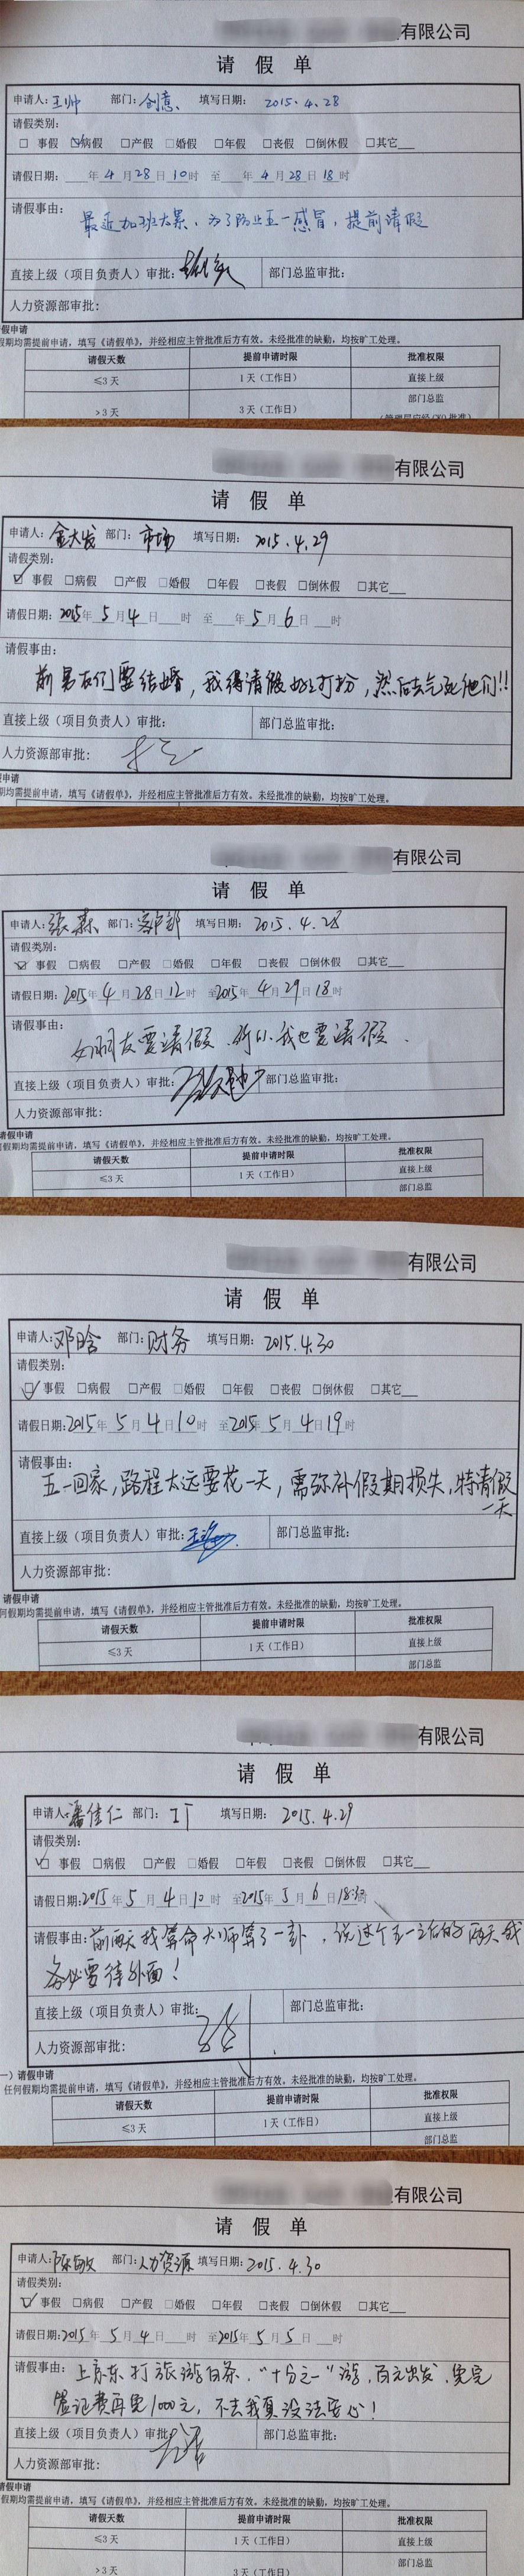 有限公司
请 假 单
申请人:王帅 部门:创意 填写日期: 2015.4.28
请假类别:
□ 事假 ☑病假 □产假 □婚假 □年假 □丧假 □倒休假 □其它___
请假日期: ___年 4 月 28 日 10 时 至 ___年 4 月 28 日 18 时
请假事由:
最近加班太累、为了防止五一感冒,提前请假
直接上级(项目负责人)审批: 部门总监审批:
人力资源部审批:
假申请
假期均需提前申请,填写《请假单》,并经相应主管批准后方有效。未经批准的缺勤,均按旷工处理。
请假天数 提前申请时限 批准权限
≤3 天 1 天(工作日) 直接上级
>3 天 3 天(工作日) 部门总监
有限公司
请 假 单
申请人:金大发 部门:市场 填写日期: 2015.4.29
请假类别:
☑ 事假 □病假 □产假 □婚假 □年假 □丧假 □倒休假 □其它___
请假日期: 2015年 5 月 4 日 ___时 至 ___年 5 月 6 日 ___时
请假事由:
前男友们要结婚,我得请假好好打扮,然后去气死他们!!
直接上级(项目负责人)审批: 部门总监审批:
人力资源部审批:
申请
期均需提前申请,填写《请假单》,并经相应主管批准后方有效。未经批准的缺勤,均按旷工处理。
有限公司
请 假 单
申请人:张森 部门:客户部 填写日期: 2015.4.28
请假类别:
☑ 事假 □病假 □产假 □婚假 □年假 □丧假 □倒休假 □其它___
请假日期: 2015年 4 月 28 日 12 时 至2015年 4 月 29 日 18 时
请假事由:
女朋友要请假 所以我也要请假.
直接上级(项目负责人)审批: 部门总监审批:
人力资源部审批:
请假申请
假期均需提前申请,填写《请假单》,并经相应主管批准后方有效。未经批准的缺勤,均按旷工处理。
请假天数 提前申请时限 批准权限
≤3 天 1 天(工作日) 直接上级
部门总监
有限公司
请 假 单
申请人:邓晗 部门:财务 填写日期: 2015.4.30
请假类别:
☑ 事假 □病假 □产假 □婚假 □年假 □丧假 □倒休假 □其它___
请假日期:2015年 5 月 4 日 10 时 至2015年 5 月 4 日 19 时
请假事由:
五一回家,路程太远要花一天,需弥补假期损失,特请假
一天
直接上级(项目负责人)审批: 部门总监审批:
人力资源部审批:
请假申请
何假期均需提前申请,填写《请假单》,并经相应主管批准后方有效。未经批准的缺勤,均按旷工处理。
请假天数 提前申请时限 批准权限
≤3 天 1 天(工作日) 直接上级
部门总监
有限公司
请 假 单
申请人:潘佳仁 部门: IT 填写日期: 2015.4.29
请假类别:
☑ 事假 □病假 □产假 □婚假 □年假 □丧假 □倒休假 □其它___
请假日期:2015年 5 月 4 日 10 时 至2015年 5 月 6 日 18:30
请假事由:前两天找算命大师算了一卦,说这个五一之后的两天我
务必要待外面!
直接上级(项目负责人)审批: 部门总监审批:
人力资源部审批:
一)请假申请
任何假期均需提前申请,填写《请假单》,并经相应主管批准后方有效。未经批准的缺勤,均按旷工处理。
请假天数 提前申请时限 批准权限
≤3 天 1 天(工作日) 直接上级
部门总监
有限公司
请 假 单
申请人:陈敏 部门:人力资源 填写日期:2015.4.30
请假类别:
☑ 事假 □病假 □产假 □婚假 □年假 □丧假 □倒休假 □其它___
请假日期:2015年 5 月 4 日 ___时 至2015年 5 月 5 日 ___时
请假事由:上京东打旅游白条,“十分之一”游,百元出发,免完
签证费再免1000元,不去我真没法安心!
直接上级(项目负责人)审批: 部门总监审批:
人力资源部审批:
请假申请
假期均需提前申请,填写《请假单》,并经相应主管批准后方有效。未经批准的缺勤,均按旷工处理。
请假天数 提前申请时限 批准权限
≤3 天 1 天(工作日) 直接上级
>3 天 3 天(工作日) 部门总监